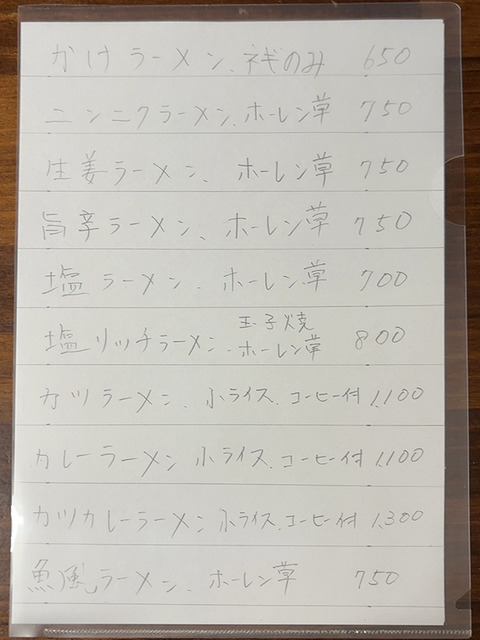 かけラーメン、ネギのみ 650
ニンニクラーメン、ホーレン草 750
生姜ラーメン、ホーレン草 750
旨辛ラーメン、ホーレン草 750
塩ラーメン、ホーレン草 700
塩リッチラーメン、玉子焼 ホーレン草 800
カツラーメン、小ライス、コーヒー付 1,100
カレーラーメン 小ライス、コーヒー付 1,100
カツカレーラーメン 小ライス、コーヒー付 1,300
魚風ラーメン、ホーレン草 750